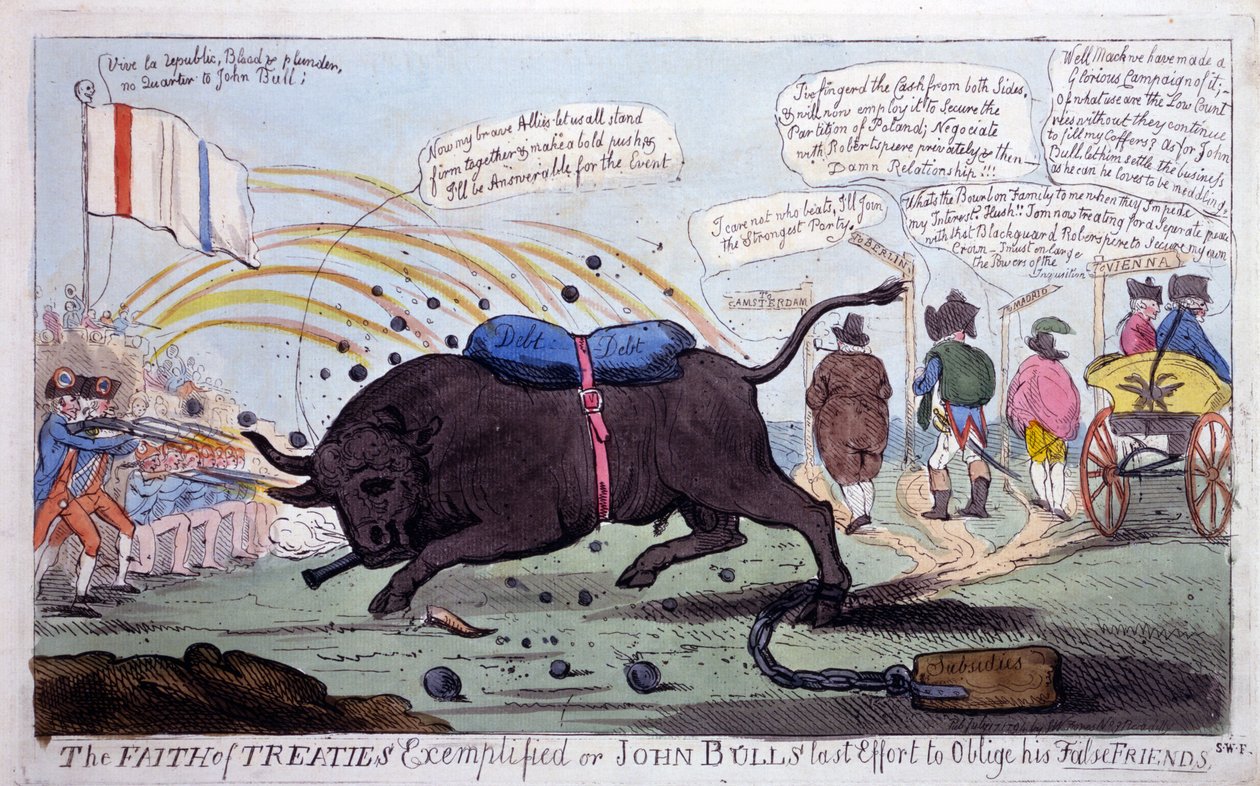 Vive la republic, Blood & plunder,
no Quarter to John Bull;
Now my brave Allies let us all stand
firm together & make a bold push &
I'll be Answerable for the Event
I've finger'd the Cash from both Sides,
& will now employ it to Secure the
Partition of Poland; Negociate
with Robertspiere privately & then—
Damn Relationship!!!
Well Mack we have made a
Glorious Campaign of it;—
of what use are the Low Count
ries without they continue
to fill my Coffers? As for John
Bull, let him settle the business
as he can he loves to be meddling,
I care not who beats, I'll Join
the Strongest Party.
Whats the Bourbon Family to me when they Impede
my Interest. Hush!! I am now Treating for a Seperate peace
with that Blackguard Roberspiere to Secure my own
Crown — I must enlarge
the Powers of the
Inquisition
To BERLIN
To VIENNA
To
AMSTERDAM
To MADRID
Debt Debt
Subsidies
Pub July 1794 by SW Fores No 3 Piccadilly
The FAITH of TREATIES Exemplified or JOHN BULLS last Effort to Oblige his False FRIENDS,
S.W.F.